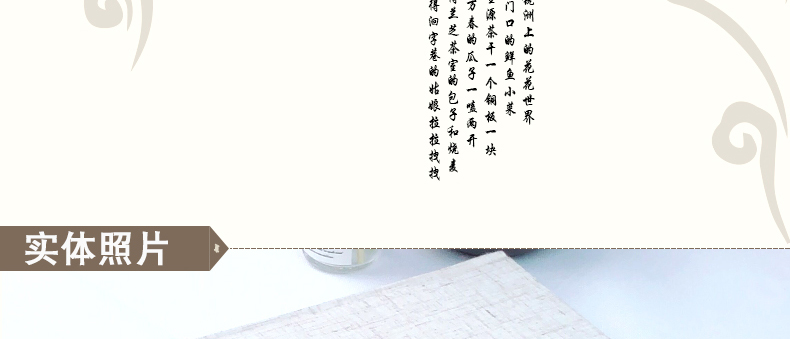 洲上的花花世界
门口的鲜鱼小菜
源茶干一个铜板一块
万春的瓜子一嗑两开
兰芝茶室的包子和烧麦
字巷的姑娘拉拉拽拽
实体照片